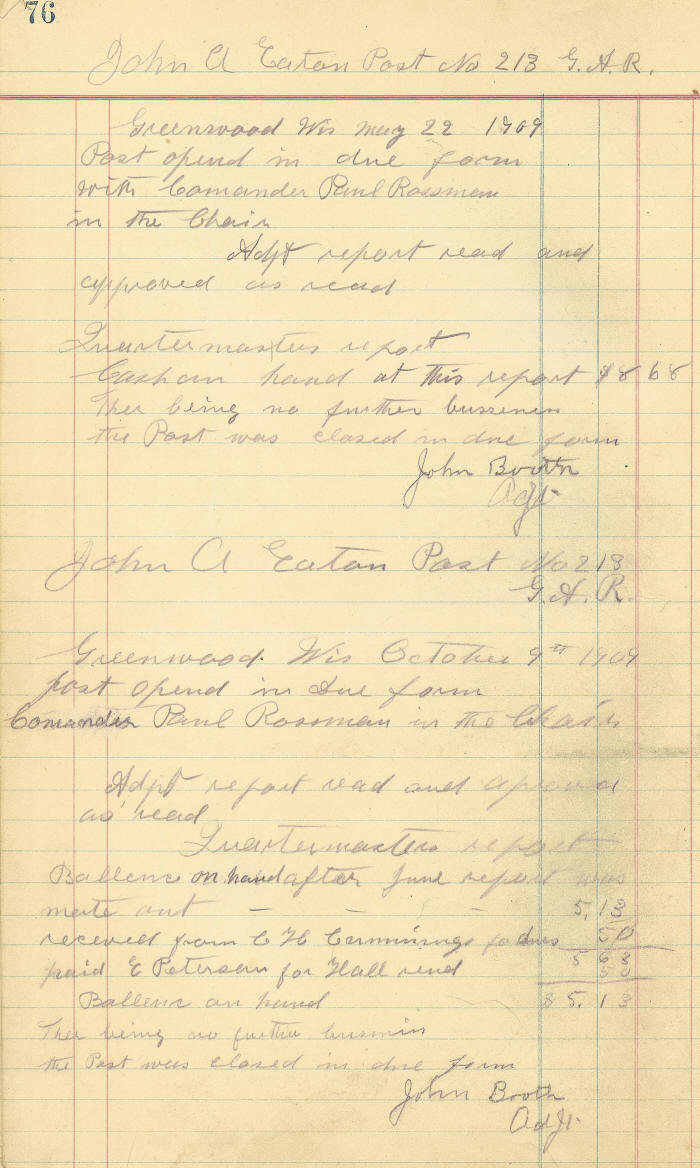 76
John A Eaton Post No 213 G.A.R.
Greenwood Wis May 22 1909
Post opend in due form
with Comander Paul Rossman
in the Chair
Adjt report read and
approved as read
Quartermasters report
Cash on hand at this report $8 68
Ther being no further bussenen
the Post was closed in due form
John Booth
Adjt
John A Eaton Post No 213
G.A.R.
Greenwood. Wis October 9th 1909
post opend in due form
Comander Paul Rossman in the Chair
Adjt report read and aproved
as read
Quartermasters report
Ballenc on hand after June report was
mate out - - - 5,13
receved from C H Cummings for dues 50
5 63
paid E Peterson for Hall rend 50
Ballenc on hand $ 5.13
Ther being no further busnin
the Post was closed in due form
John Booth
Adjt.